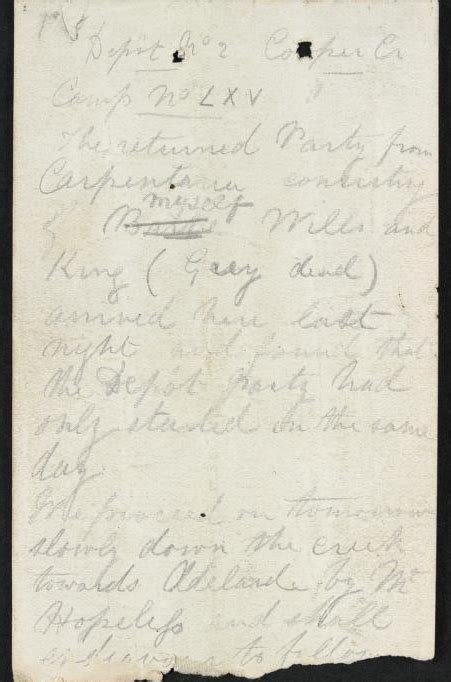 Depôt No 2 Cooper Cr
Camp No LXV
The returned Party from
Carpentaria consisting
of Burke myself Wills and
King (Grey dead)
arrived here last
night and found that
the Depôt party had
only started on the same
day.
We proceed on tomorrow
slowly down the creek
towards Adelaide by Mt
Hopeless and shall
endeavour to follow